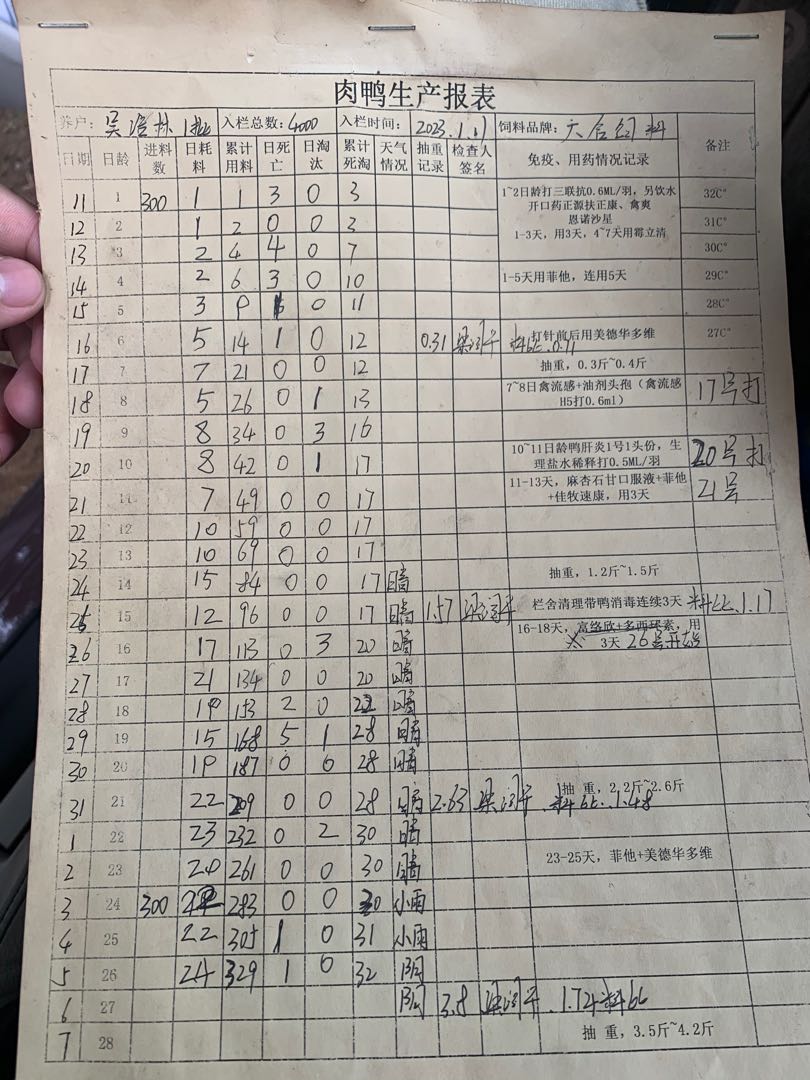 肉鸭生产报表
养户: 吴 林 1批 入栏总数: 4000 入栏时间: 2023.1.11 饲料品牌: 六合饲料 备注
日期 日龄 进料数 日耗料 累计用料 日死亡 日淘汰 累计死淘 天气情况 抽重记录 检查人签名 免疫、用药情况记录
11 1 300 1 1 3 0 3 1~2日龄打三联抗0.6ML/羽，另饮水 32C°
开口药正源扶正康、禽爽
12 2 1 2 0 0 3 恩诺沙星 31C°
1-3天，用3天，4~7天用霉立清
13 3 2 4 4 0 7 30C°
14 4 2 6 3 0 10 1-5天用菲他，连用5天 29C°
15 5 3 9 1 0 11 28C°
16 6 5 14 1 0 12 0.31 打针前后用美德华多维 料比.0.71 27C°
17 7 7 21 0 0 12 抽重，0.3斤~0.4斤
18 8 5 26 0 1 13 7~8日禽流感+油剂头孢（禽流感 17号打
H5打0.6ml）
19 9 8 34 0 3 16
20 10 8 42 0 1 17 10~11日龄鸭肝炎1号1头份，生 20号打
理盐水稀释打0.5ML/羽
21 11 7 49 0 0 17 11-13天，麻杏石甘口服液+菲他 21号
+佳牧速康，用3天
22 12 10 59 0 0 17
23 13 10 69 0 0 17
24 14 15 84 0 0 17 晴 抽重，1.2斤~1.5斤
25 15 12 96 0 0 17 晴 1.57 栏舍清理带鸭消毒连续3天 料比.1.17
26 16 17 113 0 3 20 晴 16-18天，富络欣+多西环素，用
3天 26号开始
27 17 21 134 0 0 20 晴
28 18 19 153 2 0 22 晴
29 19 15 168 5 1 28 晴
30 20 19 187 0 0 28 晴
31 21 22 209 0 0 28 晴 2.63 抽 重，2.2斤~2.6斤 料比.1.48
1 22 23 232 0 2 30 晴
2 23 29 261 0 0 30 晴 23-25天，菲他+美德华多维
3 24 300 22 283 0 0 30 小雨
4 25 22 305 1 0 31 小雨
5 26 24 329 1 0 32 阴
6 27 阴 3.8 1.72料比
7 28 抽 重，3.5斤~4.2斤